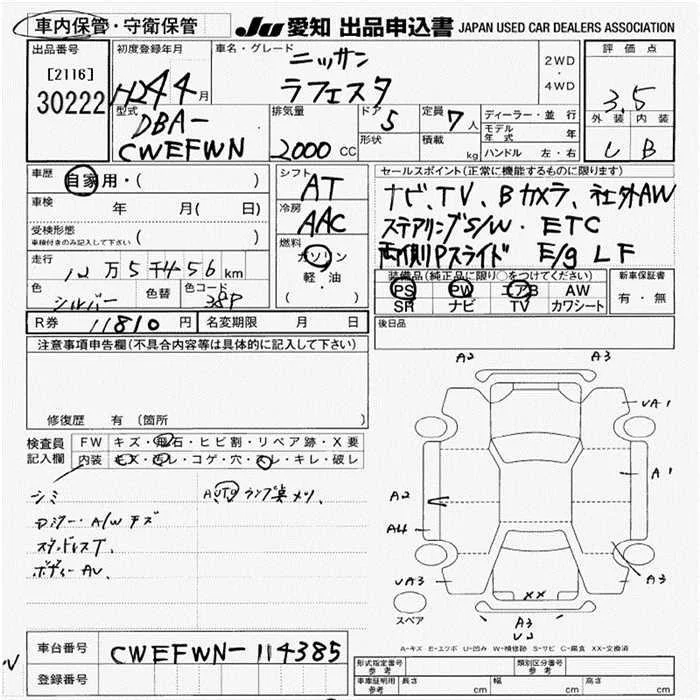 車内保管・守衛保管
JU 愛知 出品申込書 JAPAN USED CAR DEALERS ASSOCIATION
出品番号
[2116]
30222
初度登録年月
H24 4月
車名・グレード
ニッサン
ラフェスタ
2WD
・
4WD
評価点
3.5
外装 内装
B
型式
DBA-
CWEFWN
排気量
2000 CC
ドア
5
形状
定員
7人
積載
kg
ディーラー・並行
モデル年式 年
ハンドル 左・右
車歴
自家用・( )
車検 年 月( 日)
受検形態
車検付きのみ記入して下さい ( )
走行
万5千456km
色
シルバー
色替
色コード
38P
シフト
AT
冷房
AAC
燃料
ガソリン
軽・油
( ・ )
セールスポイント(正常に機能するものに限ります)
ナビ、TV、Bカメラ、社外AW
ステアリングS/W・ETC
両側Pスライド E/g LF
装備品(純正品に限り○をつけてください)
PS PW エアB AW
SR ナビ TV カワシート
新車保証書
有・無
R券 11810円 名変期限 月 日
後日品
注意事項申告欄(不具合内容等は具体的に記入して下さい)
修復歴 有(箇所 )
検査員
記入欄
FW キズ・飛石・ヒビ割・リペア跡・X要
内装 キズ・汚レ・コゲ・穴・スレ・キレ・破レ
シミ
A/Wキズ
AUTO ランプ
A2 A3
UA1
A1
A2
A4
UA3
A3
XX
A3
スペア
A-キズ E-エクボ U-凹み W-補修跡 S-サビ C-腐食 XX-交換済
車台番号 CWEFWN-114385
登録番号
形式指定番号
参考
類別区分番号
参考
車庫証明用
参考
長さ cm 幅 cm 高さ cm